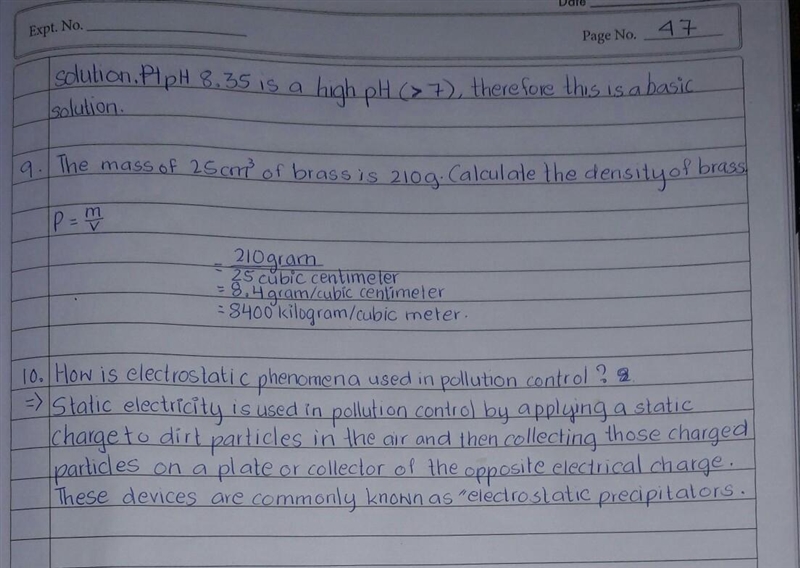 Date
Expt. No.
Page No. 47
solution. At pH 8.35 is a high pH (>7), therefore this is a basic
solution.
9. The mass of 25cm³ of brass is 210g. Calculate the density of brass
P = m/v
= 210 gram
25 cubic centimeter
= 8.4 gram/cubic centimeter
= 8400 kilogram/cubic meter.
10. How is electrostatic phenomena used in pollution control?
=> Static electricity is used in pollution control by applying a static
charge to dirt particles in the air and then collecting those charged
particles on a plate or collector of the opposite electrical charge.
These devices are commonly known as "electrostatic precipitators.